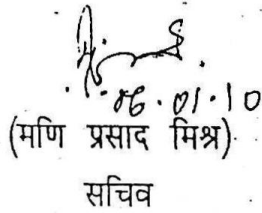 06.01.10
(मणि प्रसाद मिश्र)
सचिव